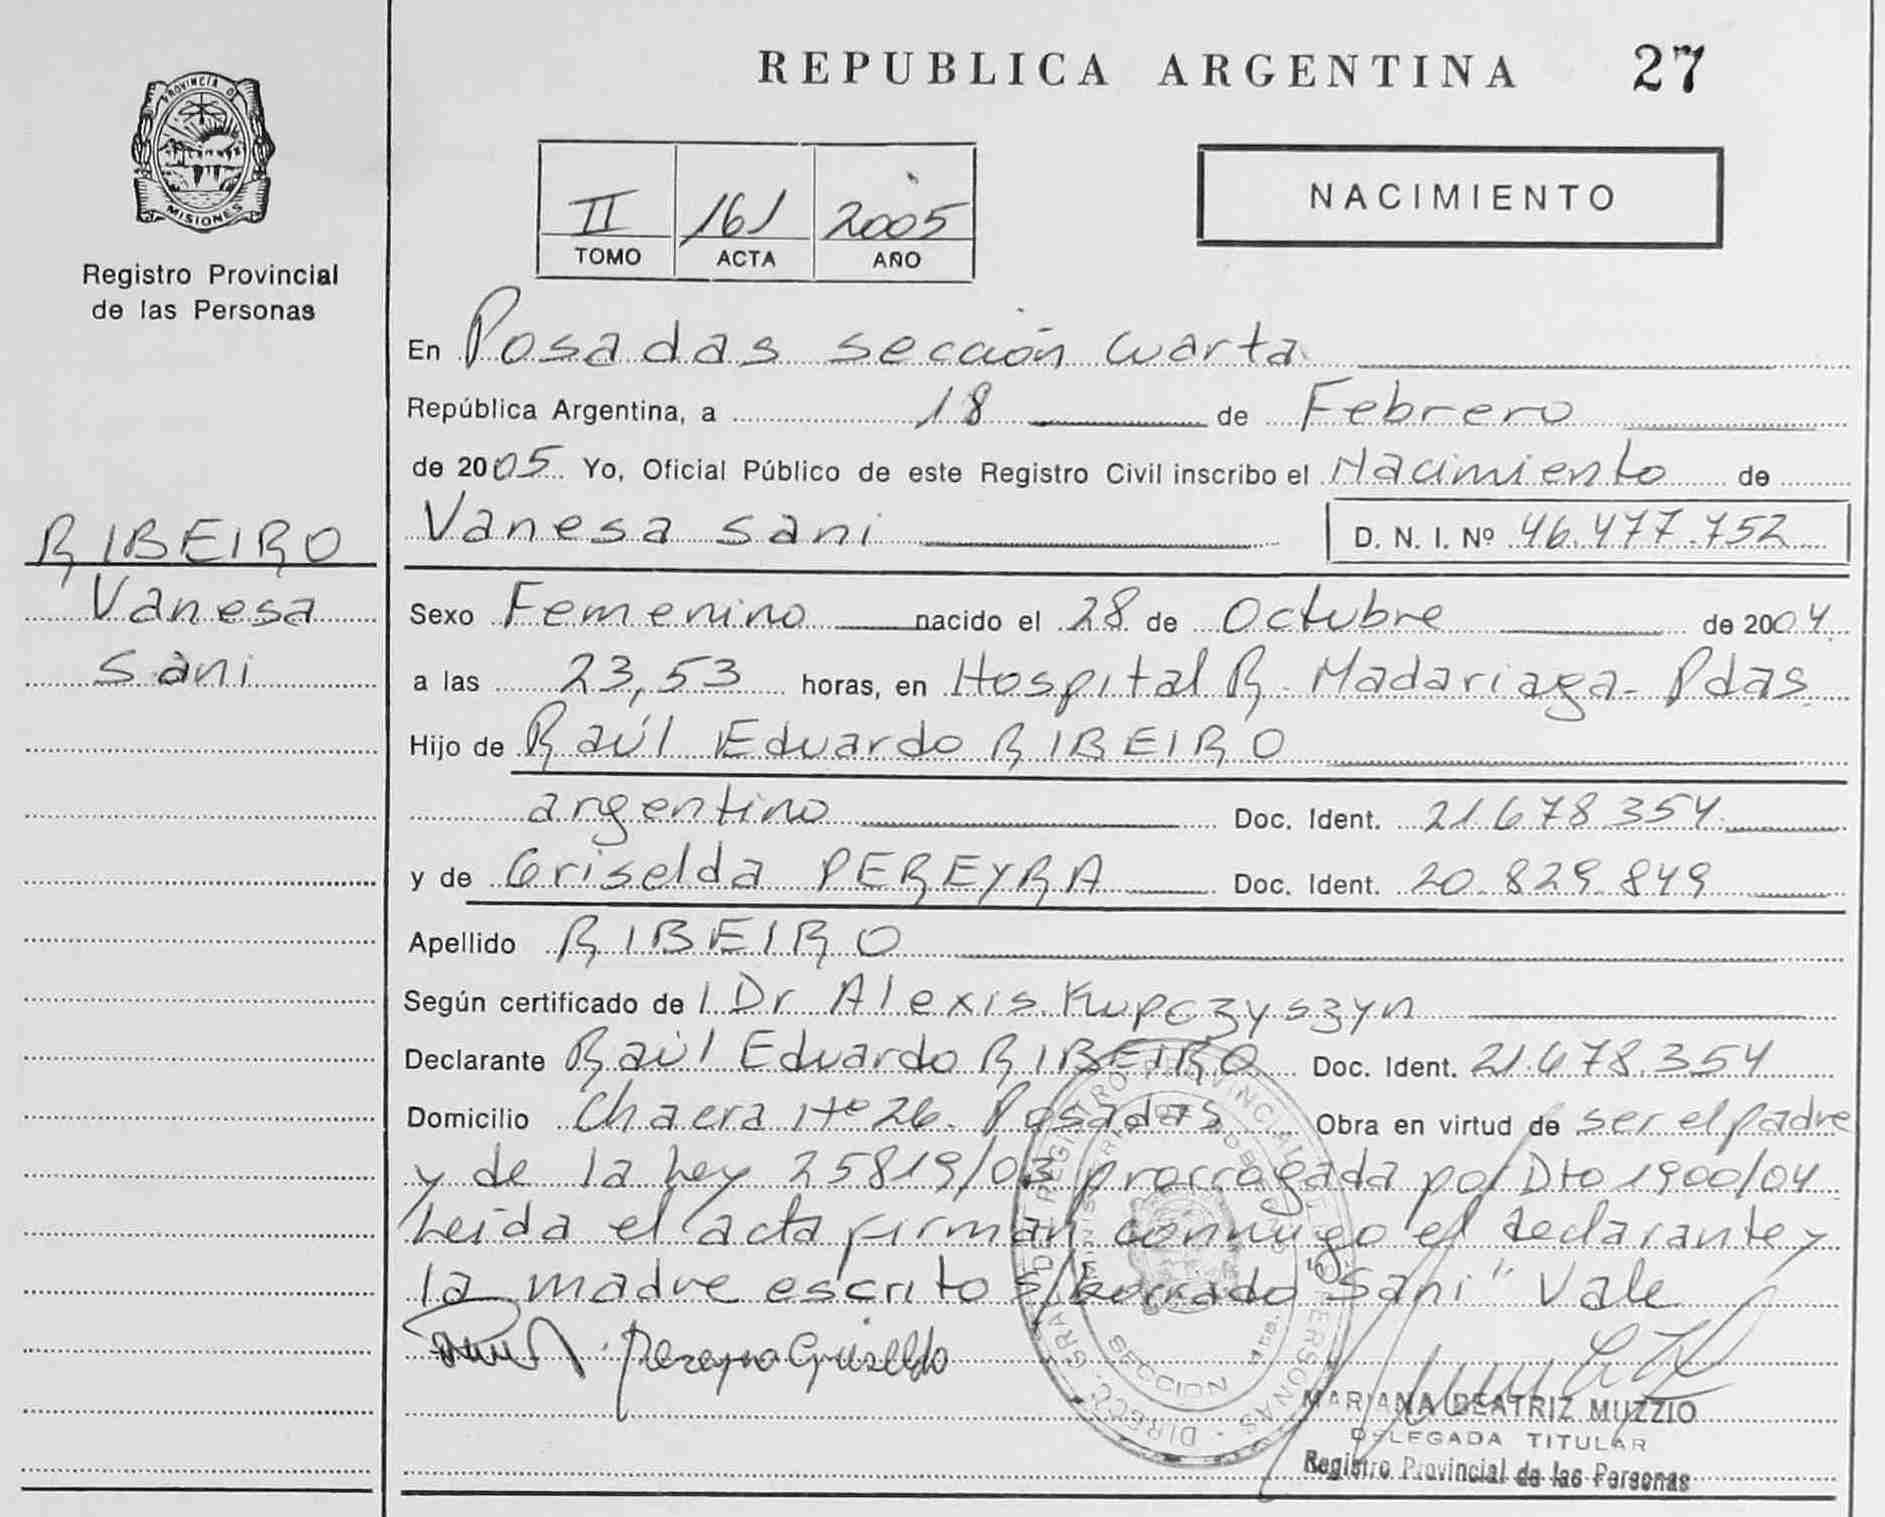 REPUBLICA ARGENTINA 27
PROVINCIA DE
MISIONES
Registro Provincial
de las Personas
II 161 2005
TOMO ACTA AÑO
NACIMIENTO
En Posadas sección cuarta
República Argentina, a 18 de Febrero
de 2005 Yo, Oficial Público de este Registro Civil inscribo el Nacimiento de
Vanesa Sani D. N. I. Nº 46.477.752
RIBEIRO
Vanesa
Sani
Sexo Femenino nacido el 28 de Octubre de 2004
a las 23,53 horas, en Hospital R. Madariaga - Pdas
Hijo de Raúl Eduardo RIBEIRO
argentino Doc. Ident. 21.678.354
y de Griselda PEREYRA Doc. Ident. 20.829.849
Apellido RIBEIRO
Según certificado de l Dr Alexis Kupczyszyn
Declarante Raúl Eduardo RIBEIRO Doc. Ident. 21.678.354
Domicilio Chacra Nº 26. Posadas Obra en virtud de ser el padre
y de la Ley 25819/03 prorrogada por Dto 1900/04
Leida el acta firman conmigo el declarante y
la madre escrito s/borrado "Sani" Vale
Pereyra Griselda
MARIANA BEATRIZ MUZZIO
DELEGADA TITULAR
Registro Provincial de las Personas
DIRECC. GRAL. DEL REGISTRO PROVINCIAL DE LAS PERSONAS
SECCION